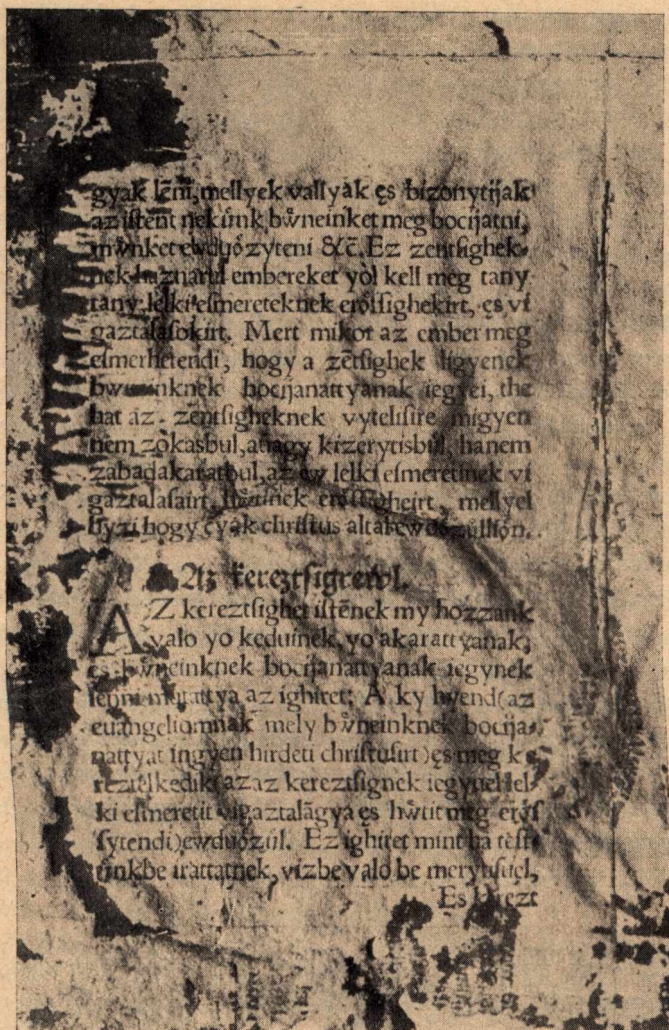 gyak lēni, mellyek vallyák ęs bizonytijak
az istent nekúnk bẃneinket meg bocijatni,
mẃnket ewduózyteni &c̄. Ez zentsighek-
nek haznarul embereket yól kell meg tany
tany, lelki esmereteknek erőssighekirt, ęs vi
gaztalasokirt. Mert mikor az ember meg
esmerhetendi, hogy a zētsighek ligyenek
bẃneinknek bocijanattyanak iegyei, the
hat az zentsigheknek vytelisire migyen
nem zókasbul, auagy kizerytisbúl, hanem
zabadakaratbul, az ew lelki esmeretinek vi
gaztalasairt, hẃtinek erőssigheirt, mellyel
hyzi hogy cyak christus altal ewdózúllión.
Az kereztsigrewl.
AZ kereztsighet istēnek my hozzank
valo yo keduinek, yo akarattyanak,
es bẃneinknek bocijanattyanak iegynek
lenni mutattya az ighiret; A ky hyend (az
euangeliomnak mely bẃneinknek bocija-
nattyat ingyen hirdeti christusirt) ęs meg ke
reztelkedik (azaz kereztsignek iegyuel lel-
ki esmeretit vigaztalāgya ęs hẃtit meg erős
sytendi) ewduózúl. Ez ighiret mint ha test
únkbe irattatnek, vizbe valo be merytisuel,
Es kerezt